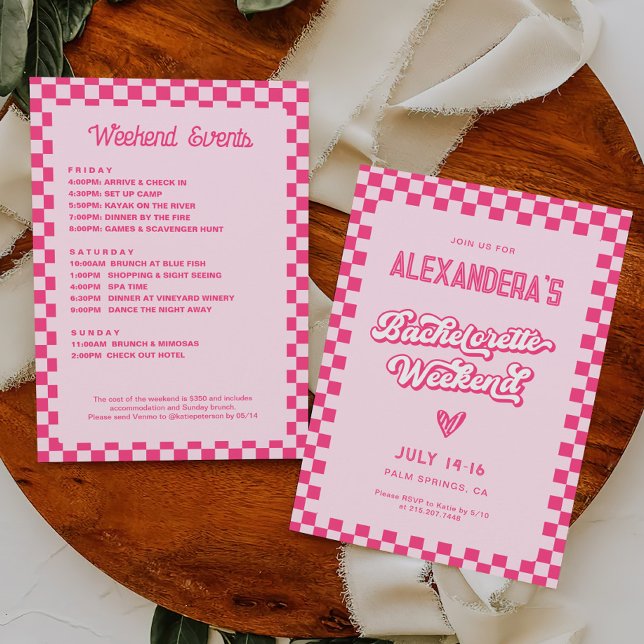 Weekend Events
FRIDAY
4:00PM: ARRIVE & CHECK IN
4:30PM: SET UP CAMP
5:50PM: KAYAK ON THE RIVER
7:00PM: DINNER BY THE FIRE
8:00PM: GAMES & SCAVENGER HUNT
SATURDAY
10:00AM BRUNCH AT BLUE FISH
1:00PM SHOPPING & SIGHT SEEING
4:00PM SPA TIME
6:30PM DINNER AT VINEYARD WINERY
9:00PM DANCE THE NIGHT AWAY
SUNDAY
11:00AM BRUNCH & MIMOSAS
2:00PM CHECK OUT HOTEL
The cost of the weekend is $350 and includes
accommodation and Sunday brunch.
Please send Venmo to @katiepeterson by 05/14
JOIN US FOR
ALEXANDERA'S
Bachelorette
Weekend
JULY 14-16
PALM SPRINGS, CA
Please RSVP to Katie by 5/10
at 215.207.7448